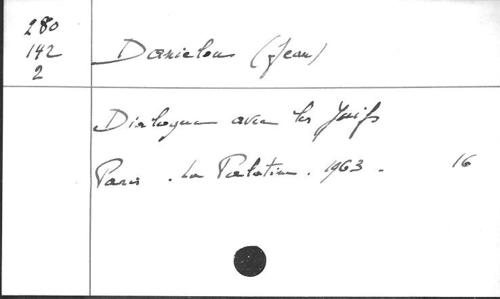 280
142
2
Danielou (Jean)
Dialogue avec les Juifs
Paris . La Palatine . 1963 . 16